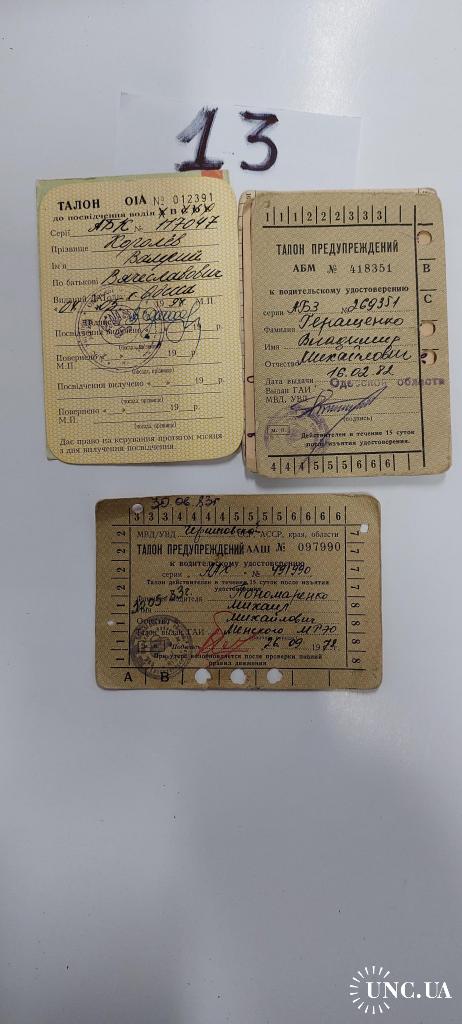 13
ТАЛОН ОІА № 012391
до посвідчення водія
Серії АБК № 117047
Прізвище Королёв
Ім'я Валерий
По батькові Вячеславович
Виданий ДАІ г. Одесса
М.П.
Посвідчення вилучено
(посада, прізвище)
Повернено «__» 19__р.
М.П.
(посада, прізвище)
Посвідчення вилучено «__» 19__р.
(посада, прізвище)
Повернено «__» 19__р.
М.П.
(посада, прізвище)
Дає право на керування протягом місяця
з дня вилучення посвідчення.
ТАЛОН ПРЕДУПРЕЖДЕНИЙ
АБМ № 418351
В
к водительскому удостоверению
серия АБЗ № 269351
С
Фамилия Геращенко
Имя Владимир
Отчество Михайлович
Дата выдачи 16.02.82
Выдан ГАИ Одесской области
МВД, УВД
(подпись)
м. п.
Действителен в течение 15 суток
после изъятия удостоверения.
4 4 4 4 4 5 5 5 6 6 6 6
30 06 83г
3 3 3 3 3 4 4 5 5 6 6 6 6
МВД/УВД Черниговской АССР, края, области
ТАЛОН ПРЕДУПРЕЖДЕНИЙ ААШ № 097990
к водительскому удостоверению
серия ААК № 491990
Талон действителен в течение 15 суток после изъятия
удостоверения
водителя Пономаренко
Имя Михаил
Отчество Михайлович
Талон выдан ГАИ Менского МРЭО
26. 09 1979г.
При утере возобновляется после проверки знаний
правил движения
А В
UNC.UA